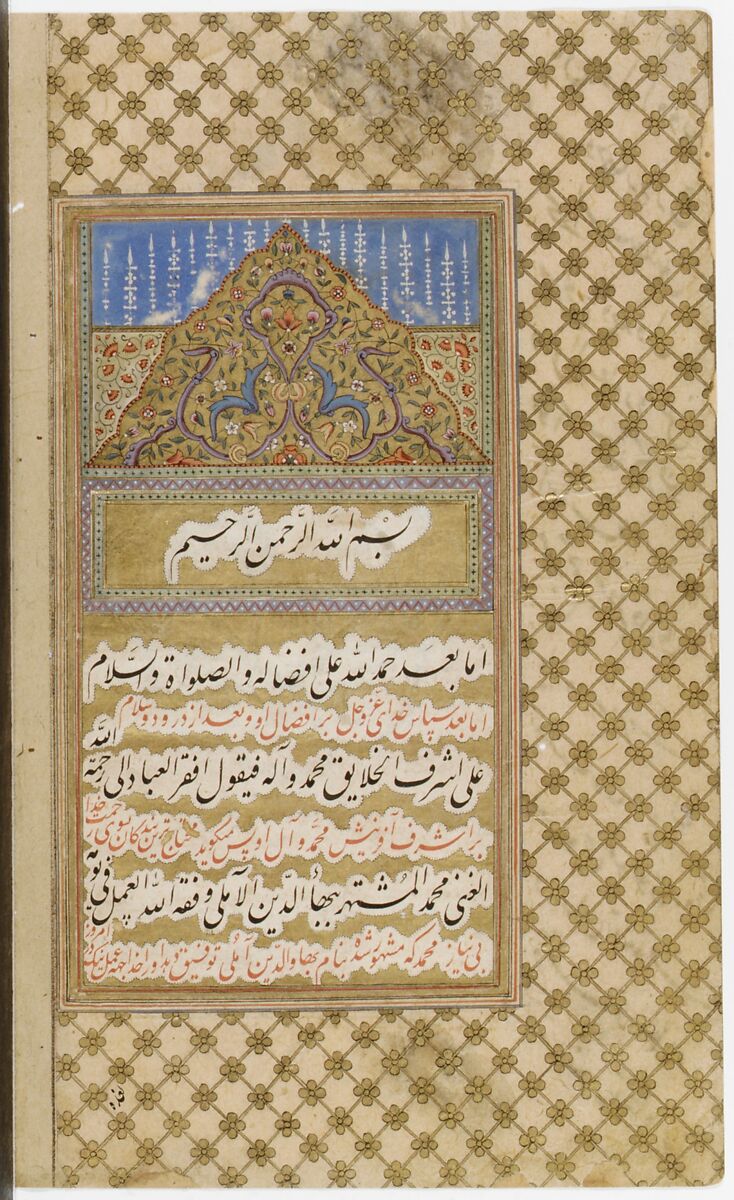 بسم الله الرحمن الرحیم
اما بعد حمد الله علی افضاله والصلواة والسلام
اما بعد سپاس خدای عز وجل بر افضال او و بعد از درود و سلام
علی اشرف الخلایق محمد وآله فیقول افقر العباد الی رحمة الله
بر اشرف آفرینش محمد و آل او پس میگوید محتاج ترین بندگان بسوی رحمت خدا
الغنی محمد المشتهر ببهاء الدین الآملی وفقه الله العمل فی یومه
بی نیاز محمد که مشهور شده بنام بهاء الدین آملی توفیق دهد اورا خدا بجهة عمل